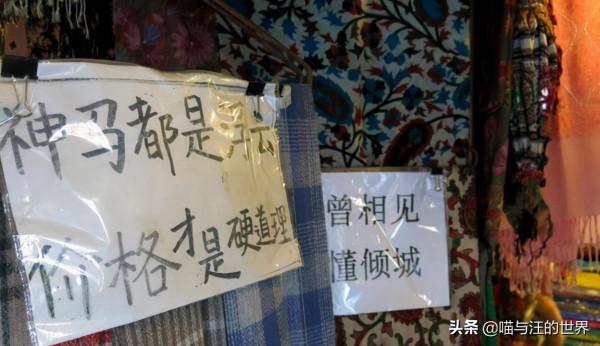 神马都是浮云
价格才是硬道理
曾相见
懂倾城
头条 @喵与汪的世界